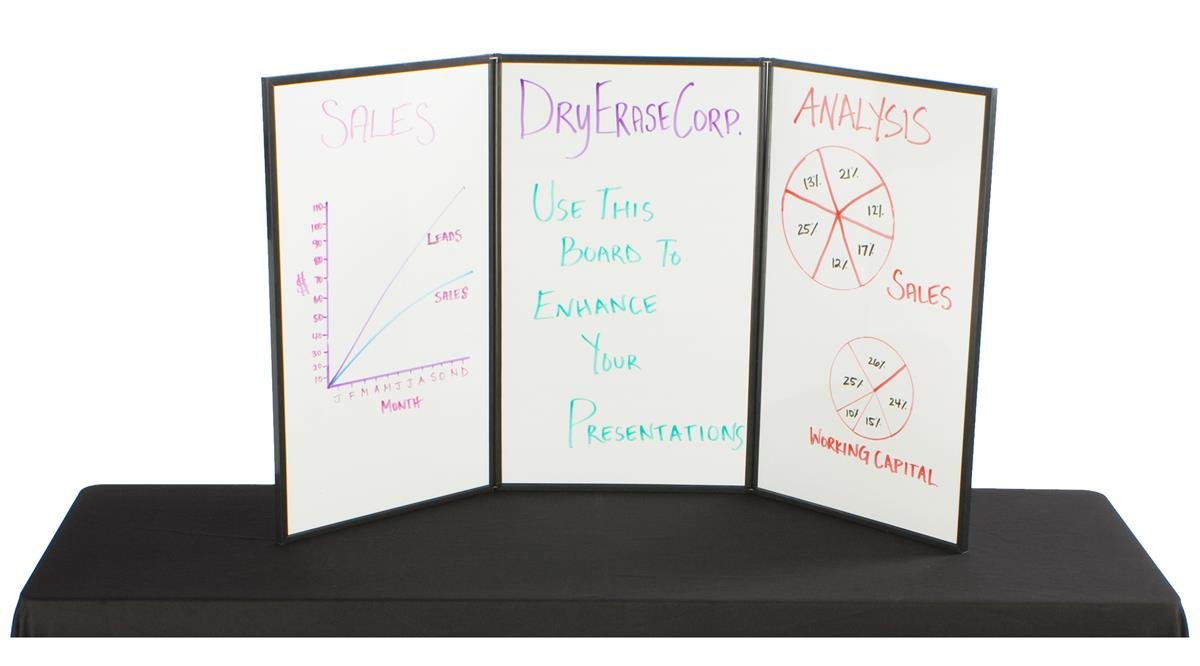 SALES
110
100
90
80
70
60
50
40
30
20
10
$
LEADS
SALES
J F M A M J J A S O N D
MONTH
DRYERASECORP.
USE THIS
BOARD TO
ENHANCE
YOUR
PRESENTATIONS
ANALYSIS
13%
21%
12%
17%
12%
25%
SALES
26%
24%
15%
10%
25%
WORKING CAPITAL